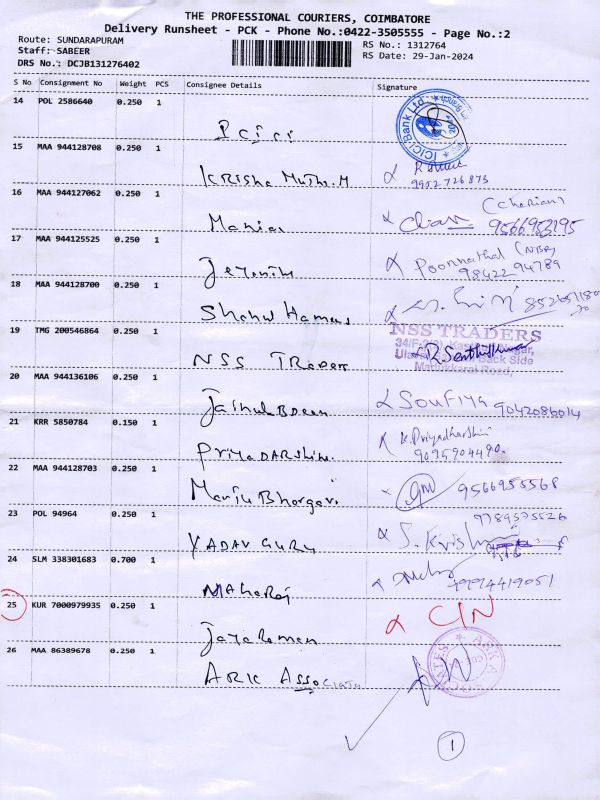 THE PROFESSIONAL COURIERS, COIMBATORE
Delivery Runsheet - PCK - Phone No.:0422-3505555 - Page No.:2
Route: SUNDARAPURAM
Staff: SABEER
RS No.: 1312764
RS Date: 29-Jan-2024
DRS No.: DCJB131276402
S No Consignment No Weight PCS Consignee Details Signature
14 POL 2586640 0.250 1
ICICI
ICICI Bank Ltd.
15 MAA 944128708 0.250 1
Krisha Muthu.M
9952726873
16 MAA 944127062 0.250 1
(Cherian)
Cherian 9566953195
17 MAA 944125525 0.250 1
Poonnathal (NBR)
98422 94789
18 MAA 944128700 0.250 1
Shahul Hameed
19 TMG 200546864 0.250 1
NSS TRADERS
NSS Traders
Back Side
Road
20 MAA 944136106 0.250 1
Soufiya 9042086014
21 KRR 5850784 0.150 1
PriyaDARSHINI
K. Priyadharshini
9095904490.
22 MAA 944128703 0.250 1
Manju Bhargavi
9566955568
23 POL 94964 0.250 1
9789575526
YADAV GURU
S. Krishna
24 SLM 338301683 0.700 1
MAHARAJ
9994419051
25 KUR 7000979935 0.250 1
CIN
Jayaraman
26 MAA 86389678 0.250 1
ARK Associates
1